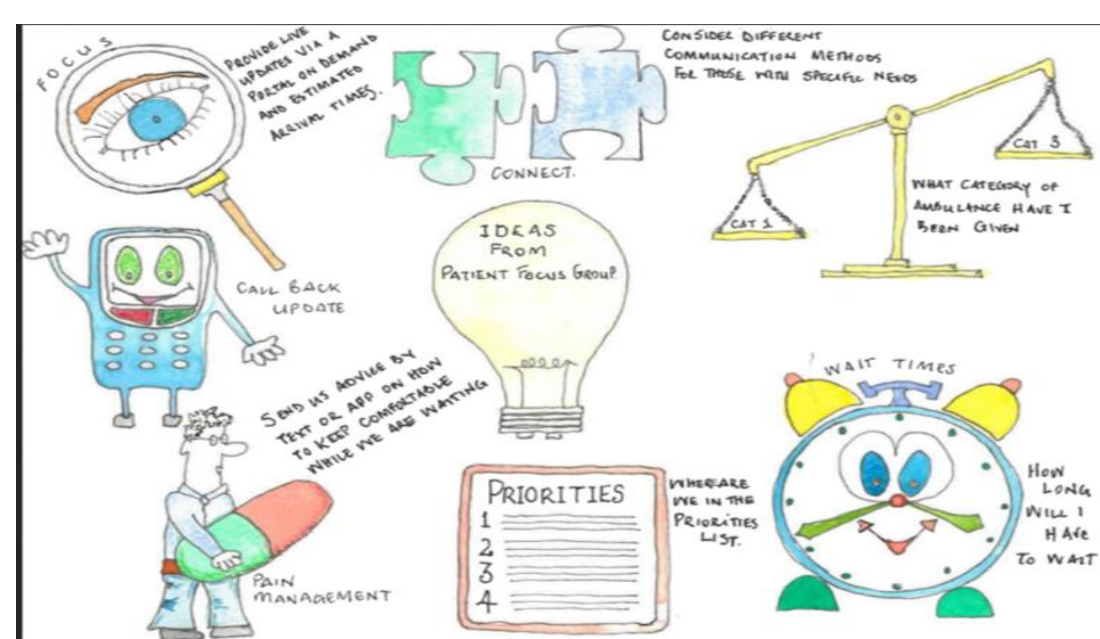 FOCUS
PROVIDE LIVE
UPDATES VIA A
PORTAL ON DEMAND
AND ESTIMATED
ARRIVAL TIMES.
CONNECT.
CONSIDER DIFFERENT
COMMUNICATION METHODS
FOR THOSE WITH SPECIFIC NEEDS
CAT 1
CAT 3
WHAT CATEGORY OF
AMBULANCE HAVE I
BEEN GIVEN
CALL BACK
UPDATE
IDEAS
FROM
PATIENT FOCUS GROUP
SEND US ADVICE BY
TEXT OR APP ON HOW
TO KEEP COMFORTABLE
WHILE WE ARE WAITING
PAIN
MANAGEMENT
PRIORITIES
1
2
3
4
WHERE ARE
WE IN THE
PRIORITIES
LIST.
WAIT TIMES
HOW
LONG
WILL I
HAVE
TO WAIT